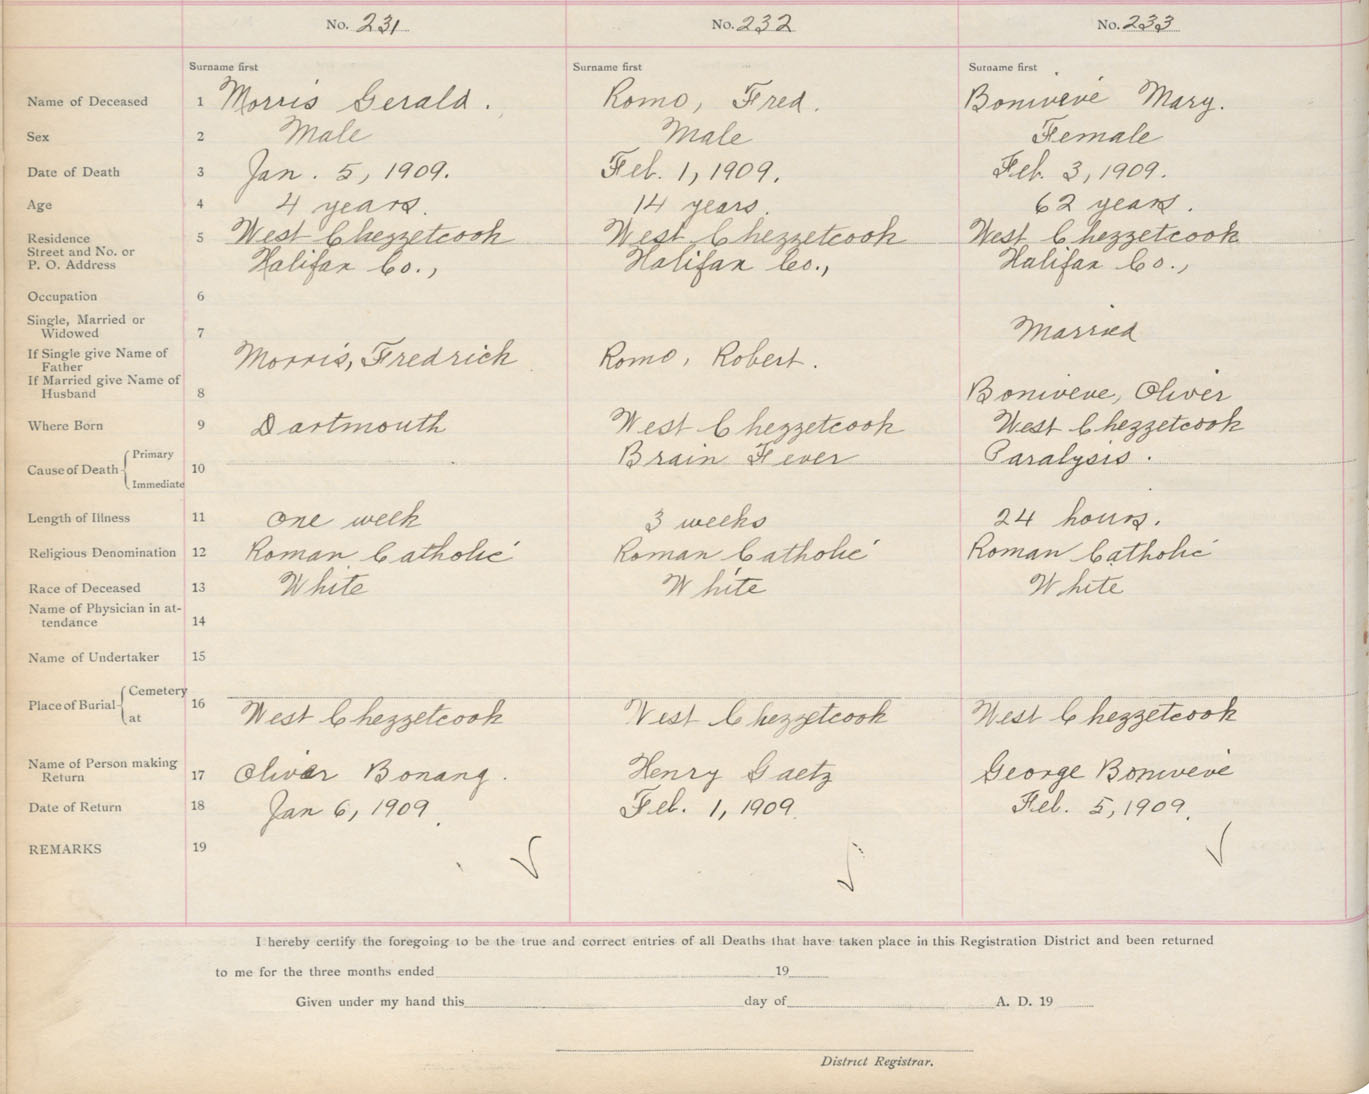 No. 231 No. 232 No. 233
Surname first Surname first Surname first
Name of Deceased 1 Morris Gerald. Romo, Fred. Bonivevé Mary.
Sex 2 Male Male Female
Date of Death 3 Jan. 5, 1909. Feb. 1, 1909. Feb. 3, 1909.
Age 4 4 years. 14 years. 62 years.
Residence 5 West Chezzetcook West Chezzetcook West Chezzetcook
Street and No. or
P. O. Address Halifax Co., Halifax Co., Halifax Co.,
Occupation 6
Single, Married or
Widowed 7 Married
If Single give Name of
Father Morris, Fredrick Romo, Robert.
If Married give Name of
Husband 8 Boniveve, Oliver
Where Born 9 Dartmouth West Chezzetcook West Chezzetcook
Primary Brain Fever Paralysis.
Cause of Death 10
Immediate
Length of Illness 11 one week 3 weeks 24 hours.
Religious Denomination 12 Roman Catholic Roman Catholic Roman Catholic
Race of Deceased 13 White White White
Name of Physician in at-
tendance 14
Name of Undertaker 15
Cemetery
Place of Burial 16
at West Chezzetcook West Chezzetcook West Chezzetcook
Name of Person making
Return 17 Oliver Bonang. Henry Gaetz George Bonivevé
Date of Return 18 Jan 6, 1909. Feb. 1, 1909. Feb. 5, 1909.
REMARKS 19
I hereby certify the foregoing to be the true and correct entries of all Deaths that have taken place in this Registration District and been returned
to me for the three months ended 19
Given under my hand this day of A. D. 19
District Registrar.